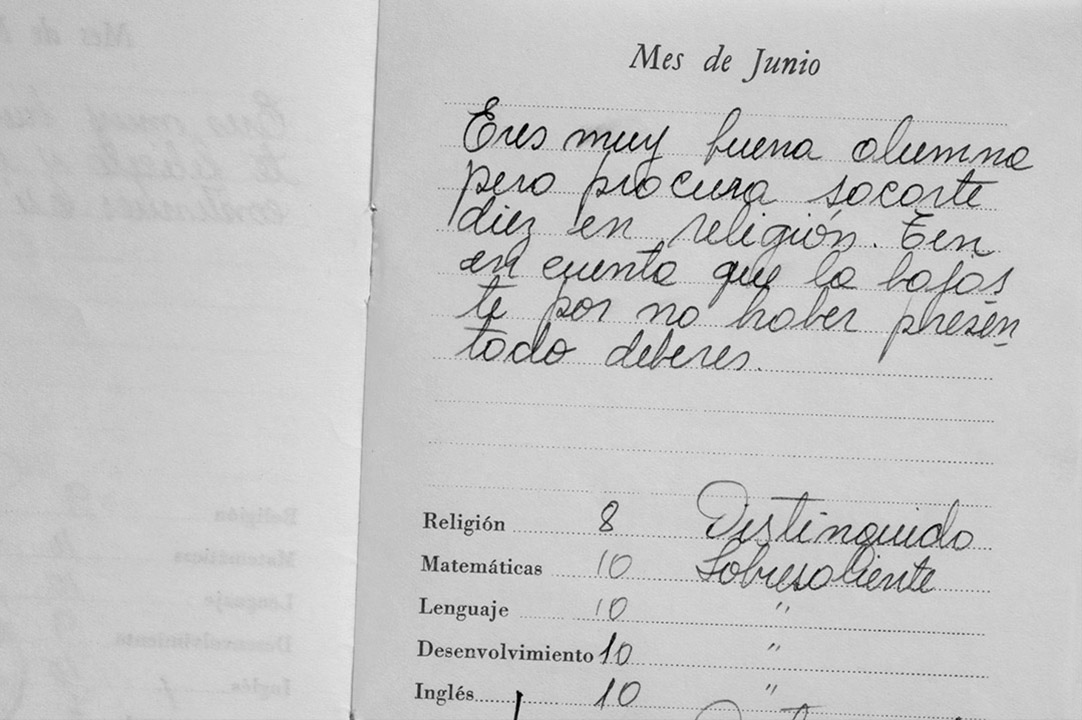 Mes de Junio
Eres muy buena alumna
pero procura sacarte
diez en religión. Ten
en cuenta que la bajas
te por no haber presen
tado deberes.
Religión 8 Distinguido
Matemáticas 10 Sobresaliente
Lenguaje 10 "
Desenvolvimiento 10 "
Inglés 10 "